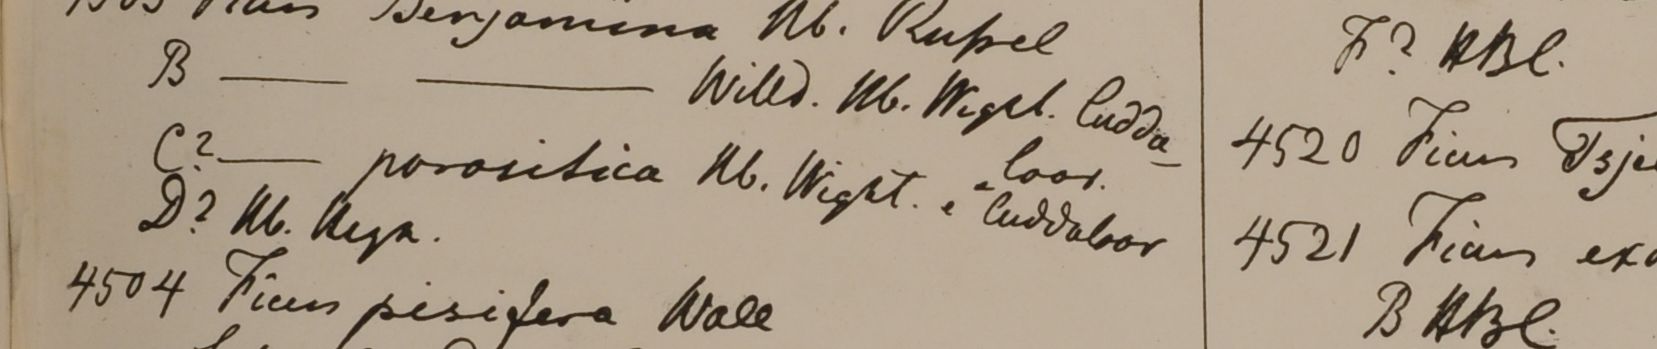 4503 Ficus Benjamina Hb. Russel
B —— ———— Willd. Hb. Wight. Cudda-
-loor.
C? —— parasitica Hb. Wight. e Cuddaloor
D? Hb. Heyn.
4504 Ficus pisifera Wall
F? HBC.
4520 Ficus Tsje
4521 Ficus exa
B HBC.